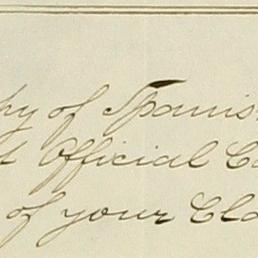 py of Spanis
Official Co
of your Cla